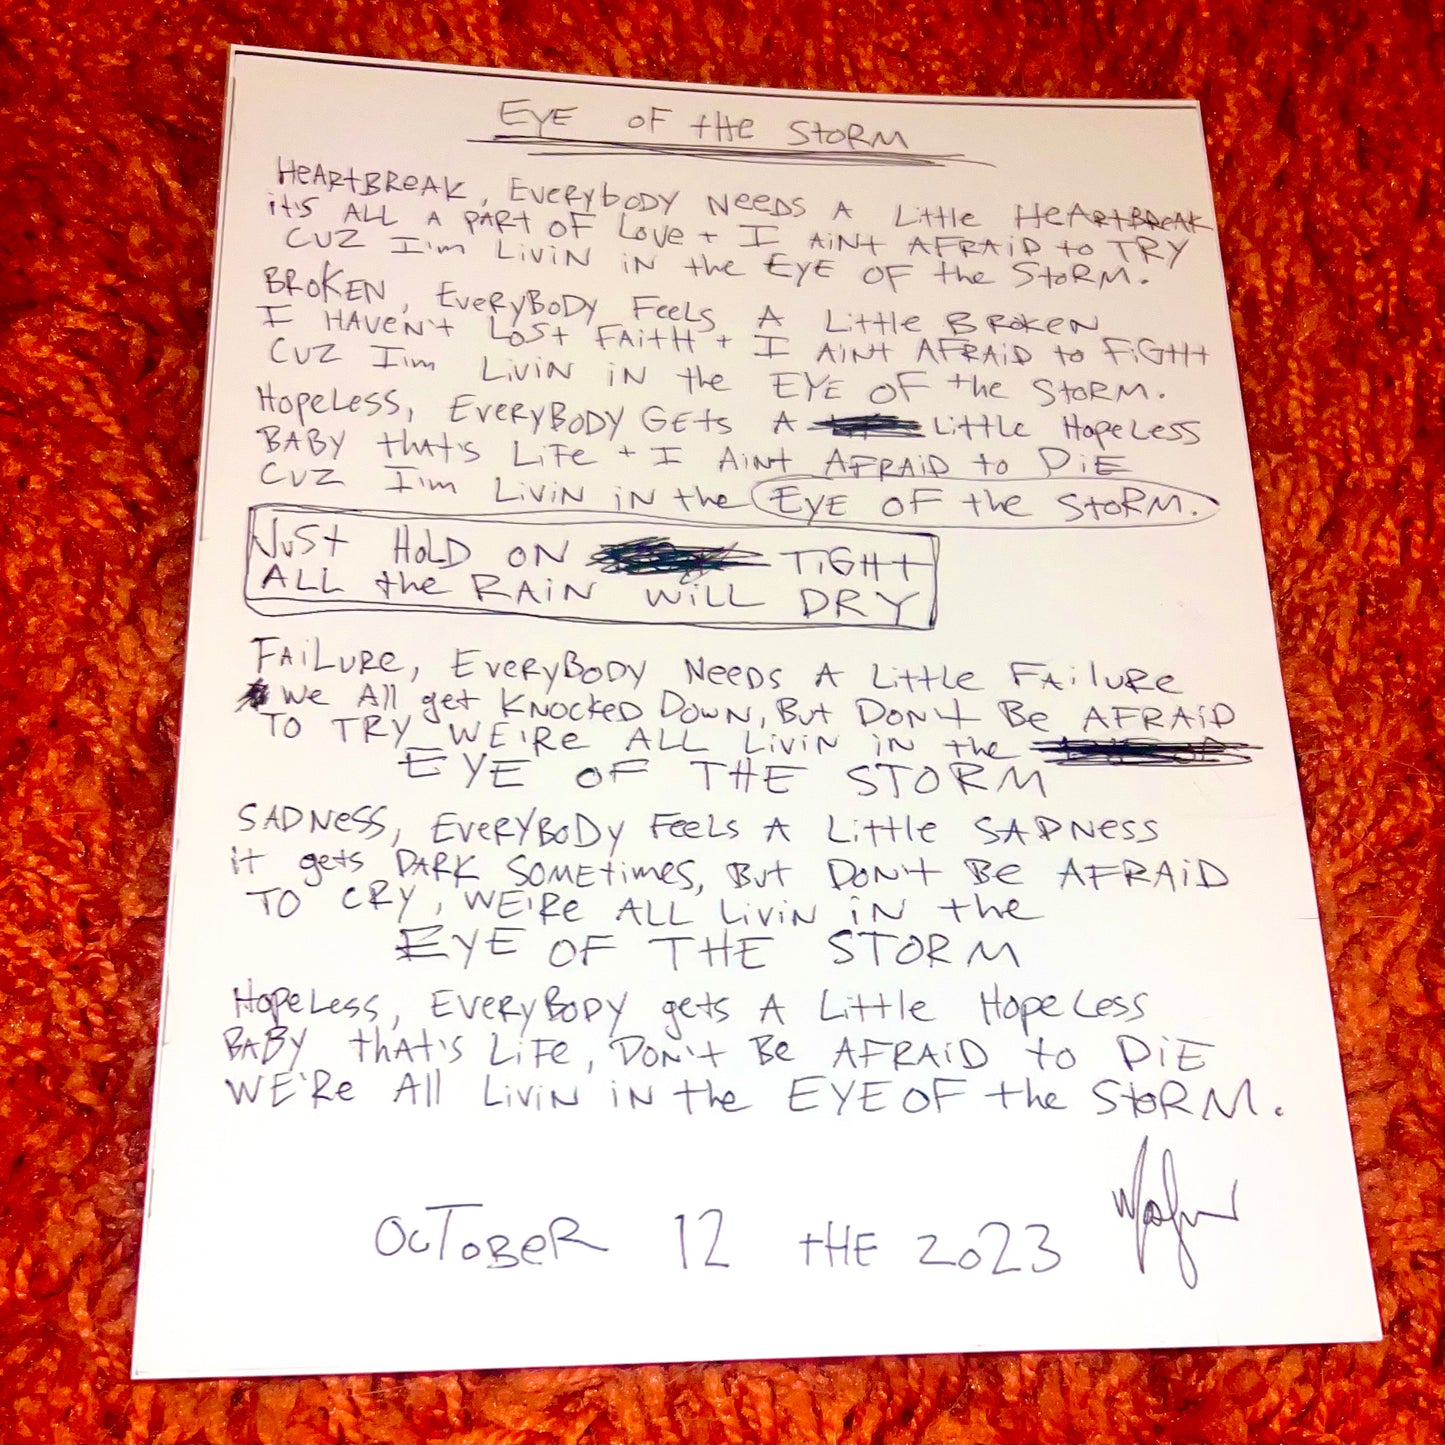 EYE OF tHe StoRM
HeARtBReAK, EveRybODY NeeDS A Little HeARtBReAK
it's ALL A PARt OF Love + I AiNt AFRAiD to TRY
CUZ I'm LiviN iN the EYE OF the StoRM.
BRoKEN, EveRyBODY FeeLS A Little BRoKEN
I HAVEN't LoSt FAitH + I AiNt AFRAiD to FiGHt
CUZ I'm LiviN iN the EYE OF the StoRM.
HopeLess, EveRYBODY GEtS A Little HopeLess
BABY that's LiFe + I AiNt AFRAiD to DiE
CUZ I'm LiviN iN the EYE OF the StoRM.
JuSt HoLD ON TiGHt
ALL the RAiN WiLL DRY
FAiLuRe, EveRyBODY NeeDS A Little FAiluRe
We All get KNocKeD DowN, But DoN't Be AFRAiD
TO TRY WE'Re ALL LiviN iN the
EYE OF THE STORM
SADNess, EveRYBoDy FeeLs A Little SADNess
it gets DARK SOMEtimes, But DoN't Be AFRAiD
TO CRY, WE'Re ALL LiviN iN the
EYE OF THE STORM
HopeLess, EveRyBoDY gets A Little HopeLess
BABY thAt's LiFe, DoN't Be AFRAiD to DiE
WE'Re All LiviN iN the EYE OF the StoRM.
OcToBeR 12 tHE 2023